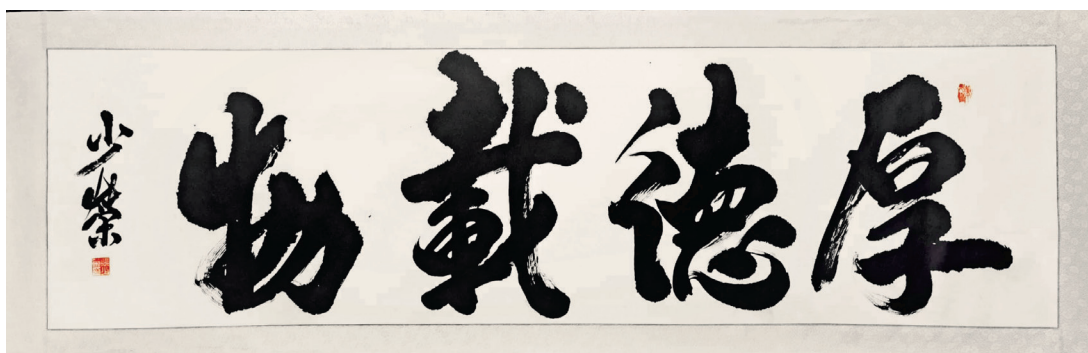 厚德載物
少榮